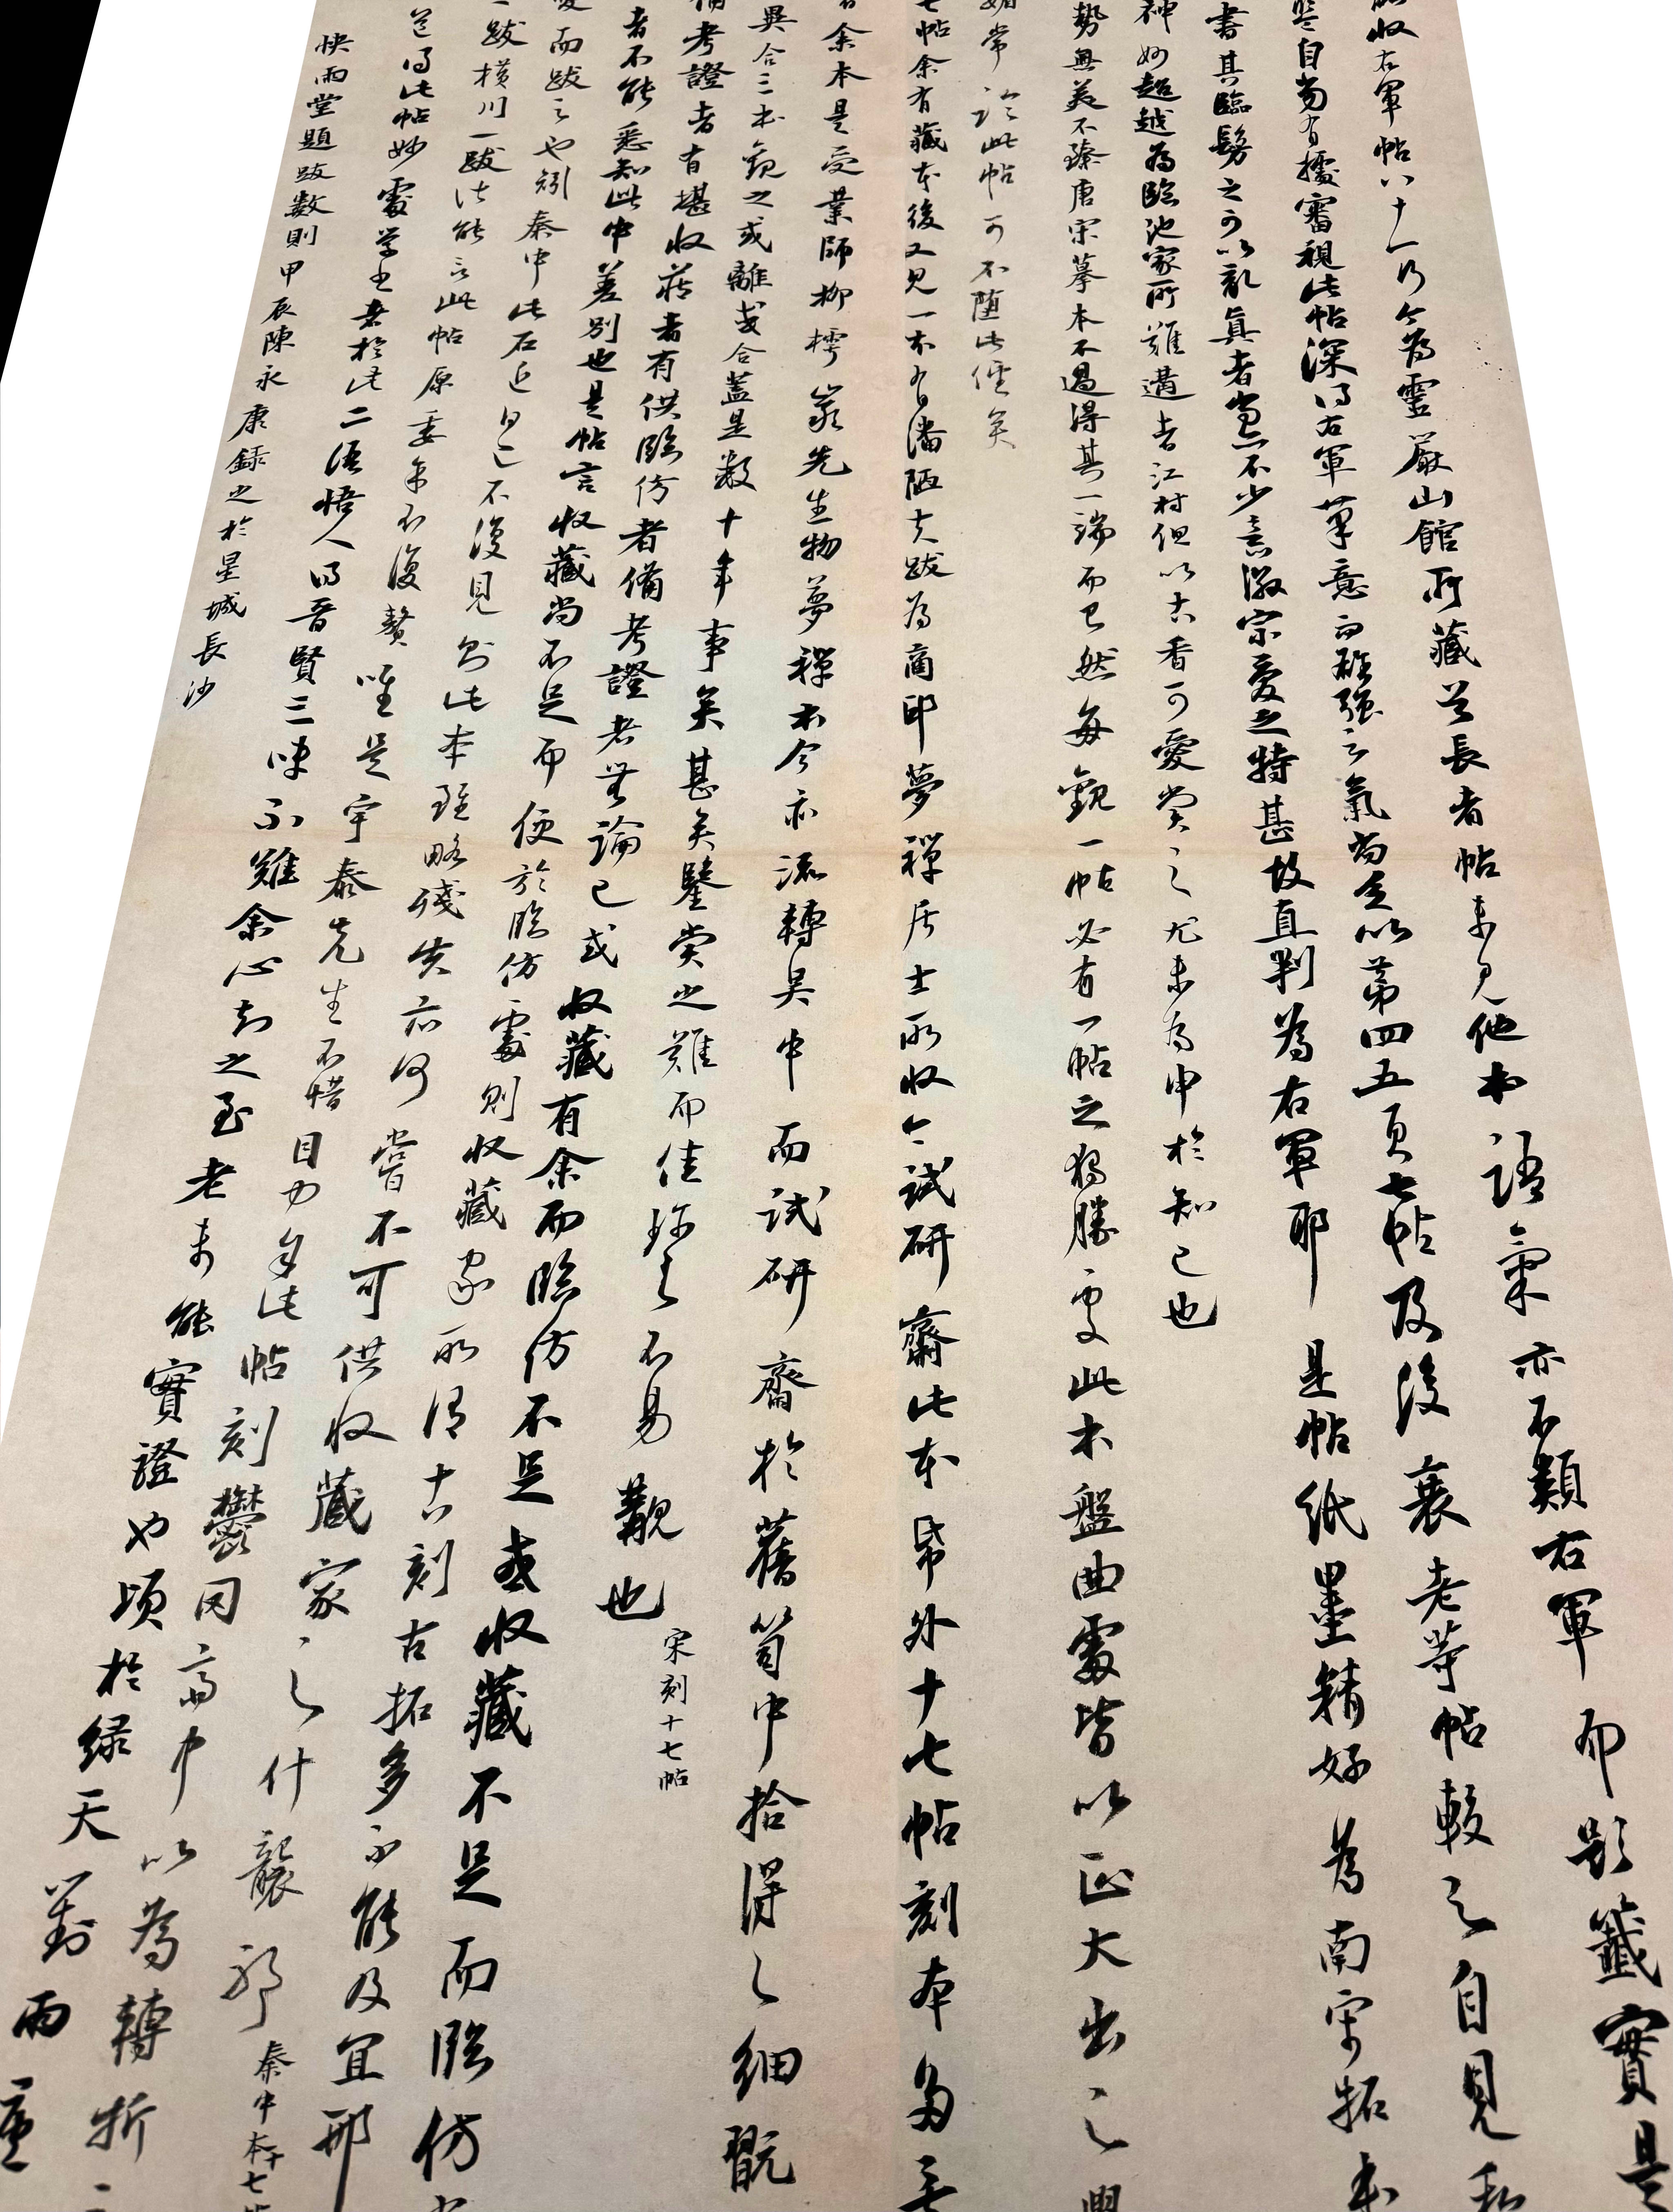 收右軍帖八十一行今為靈巖山館所藏足長者帖未見他本語氣亦不類右軍而題籤實是
自當有據審視此帖深得右軍筆意而雄強之氣尚乏以第四五頁七帖及後衰老等帖較之自見
書其臨髣之可以亂真者當亦不少意徽宗愛之特甚故直判為右軍耶是帖紙墨精好為南宋拓本
神妙超越為臨池家所難遘者江村但以古香可愛賞之尤未為申於知己也
勢無美不臻唐宋摹本不過得其一端而已然每觀一帖必有一帖之獨勝處此本盤曲處皆以正大出之
常論此帖可不墮此
七帖余有藏本後又見一本有潘陋夫跋為商邱夢禪居士所收今試研齋此本帋外十七帖刻本多
余本是受業師柳樗家先生物夢禪本今亦流轉吳中而試研齋於舊笥中拾得之細翫
異合三本觀之或離或合蓋是數十年事矣甚矣鑒賞之難而佳珍之不易覯也宋刻十七帖
考證者有堪收藏者有供臨仿者備考證者無論已或收藏有余而臨仿不足或收藏不足而臨仿
者不能悉知此中差別也是帖言收藏尚不足而便於臨仿處則收藏家所謂古刻古拓多不能及宜耶
而跋之也矧秦中此石近日已不復見則此本雖略殘失亦何嘗不可供收藏家之什襲耶秦中本十七
跋橫川一跋洋能言此帖原委余不復贅唯是宇泰先生不惜目力多此帖刻鬱岡齋中以為轉折
得此帖妙處學士書於此二語悟入得晉賢三昧不難余心知之至老未能實證也頃於綠天對雨
快雨堂題跋數則甲辰陳永康錄之於星城長沙